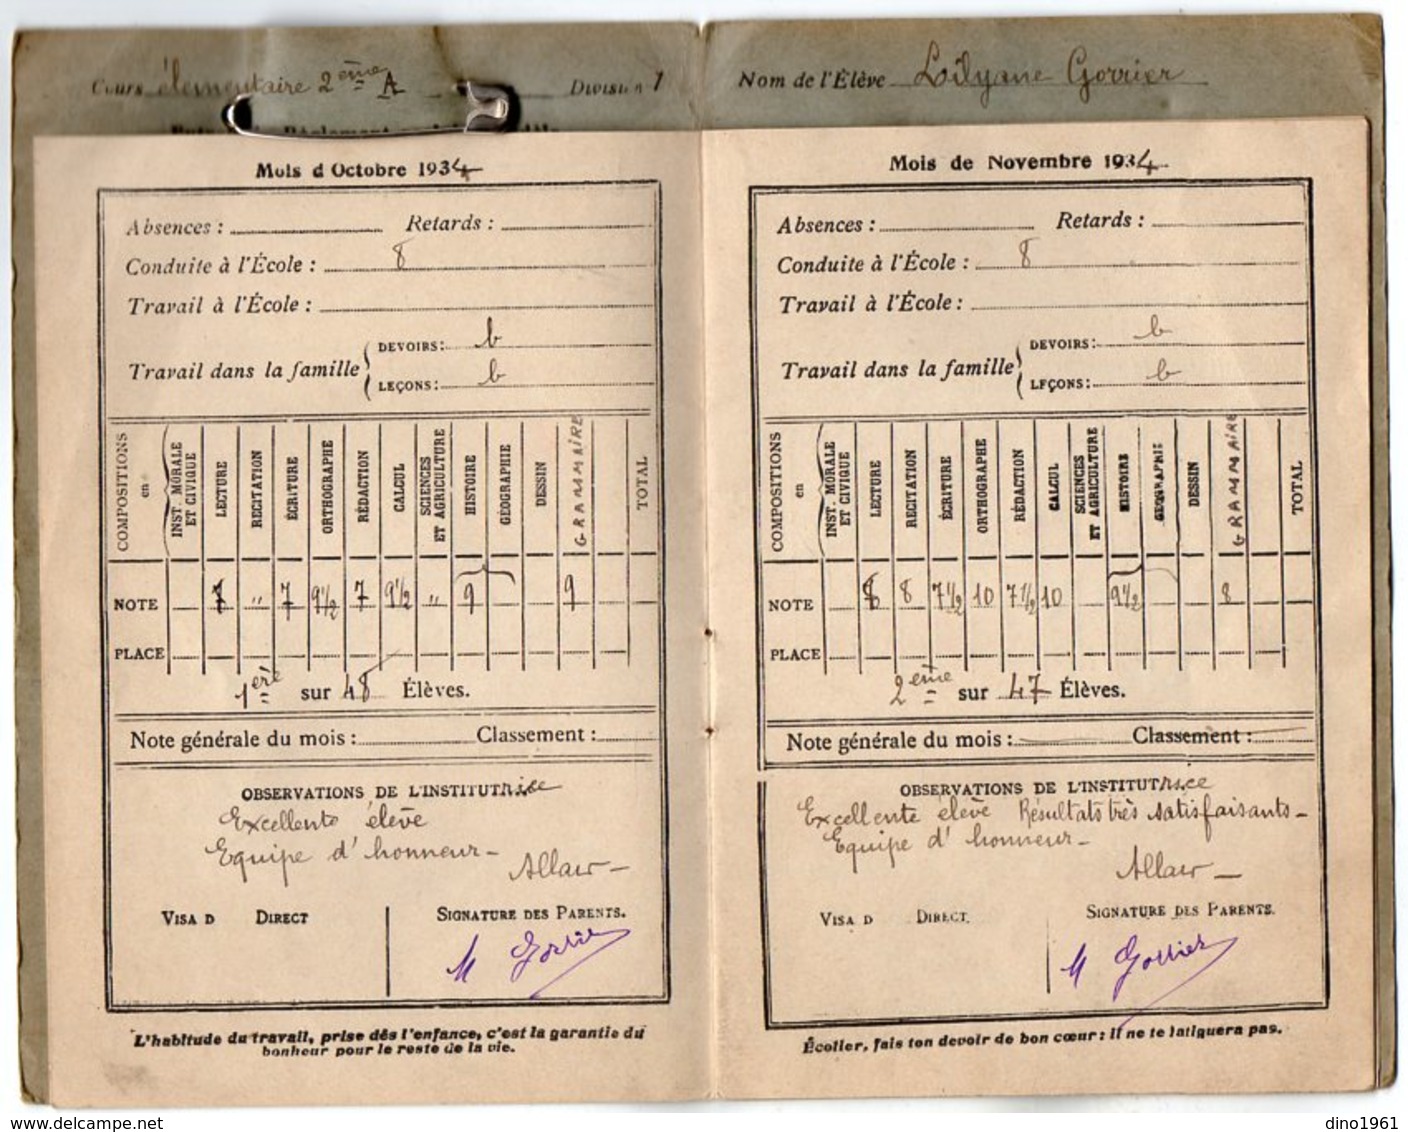 Cours élémentaire 2ème A Division 1
Nom de l'Élève Lilyane Gorrier
Mois d Octobre 1934
Absences : Retards :
Conduite à l'École : 8
Travail à l'École :
Travail dans la famille
DEVOIRS : b
LEÇONS : b
COMPOSITIONS en
INST. MORALE ET CIVIQUE
LECTURE
RECITATION
ÉCRITURE
ORTHOGRAPHE
RÉDACTION
CALCUL
SCIENCES ET AGRICULTURE
HISTOIRE
GEOGRAPHIE
DESSIN
GRAMMAIRE
TOTAL
NOTE 7 " 7 9 1/2 7 9 1/2 " 9 9
PLACE
1ère sur 48 Élèves.
Note générale du mois : Classement :
OBSERVATIONS DE L'INSTITUTrice
Excellente élève
Equipe d'honneur -
Allair -
VISA D DIRECT
SIGNATURE DES PARENTS.
M Gorrier
L'habitude du travail, prise dès l'enfance, c'est la garantie du
bonheur pour le reste de la vie.
Mois de Novembre 1934
Absences : Retards :
Conduite à l'École : 8
Travail à l'École :
Travail dans la famille
DEVOIRS : b
LEÇONS : b
COMPOSITIONS en
INST. MORALE ET CIVIQUE
LECTURE
RECITATION
ÉCRITURE
ORTHOGRAPHE
RÉDACTION
CALCUL
SCIENCES ET AGRICULTURE
HISTOIRE
GEOGRAPHIE
DESSIN
GRAMMAIRE
TOTAL
NOTE 8 8 7 1/2 10 7 1/2 10 9 1/2 8
PLACE
2ème sur 47 Élèves.
Note générale du mois : Classement :
OBSERVATIONS DE L'INSTITUTrice
Excellente élève Résultats très satisfaisants -
Equipe d'honneur -
Allair -
VISA D DIRECT.
SIGNATURE DES PARENTS.
M Gorrier
Écolier, fais ton devoir de bon cœur : il ne te fatiguera pas.
www.delcampe.net
dino1961